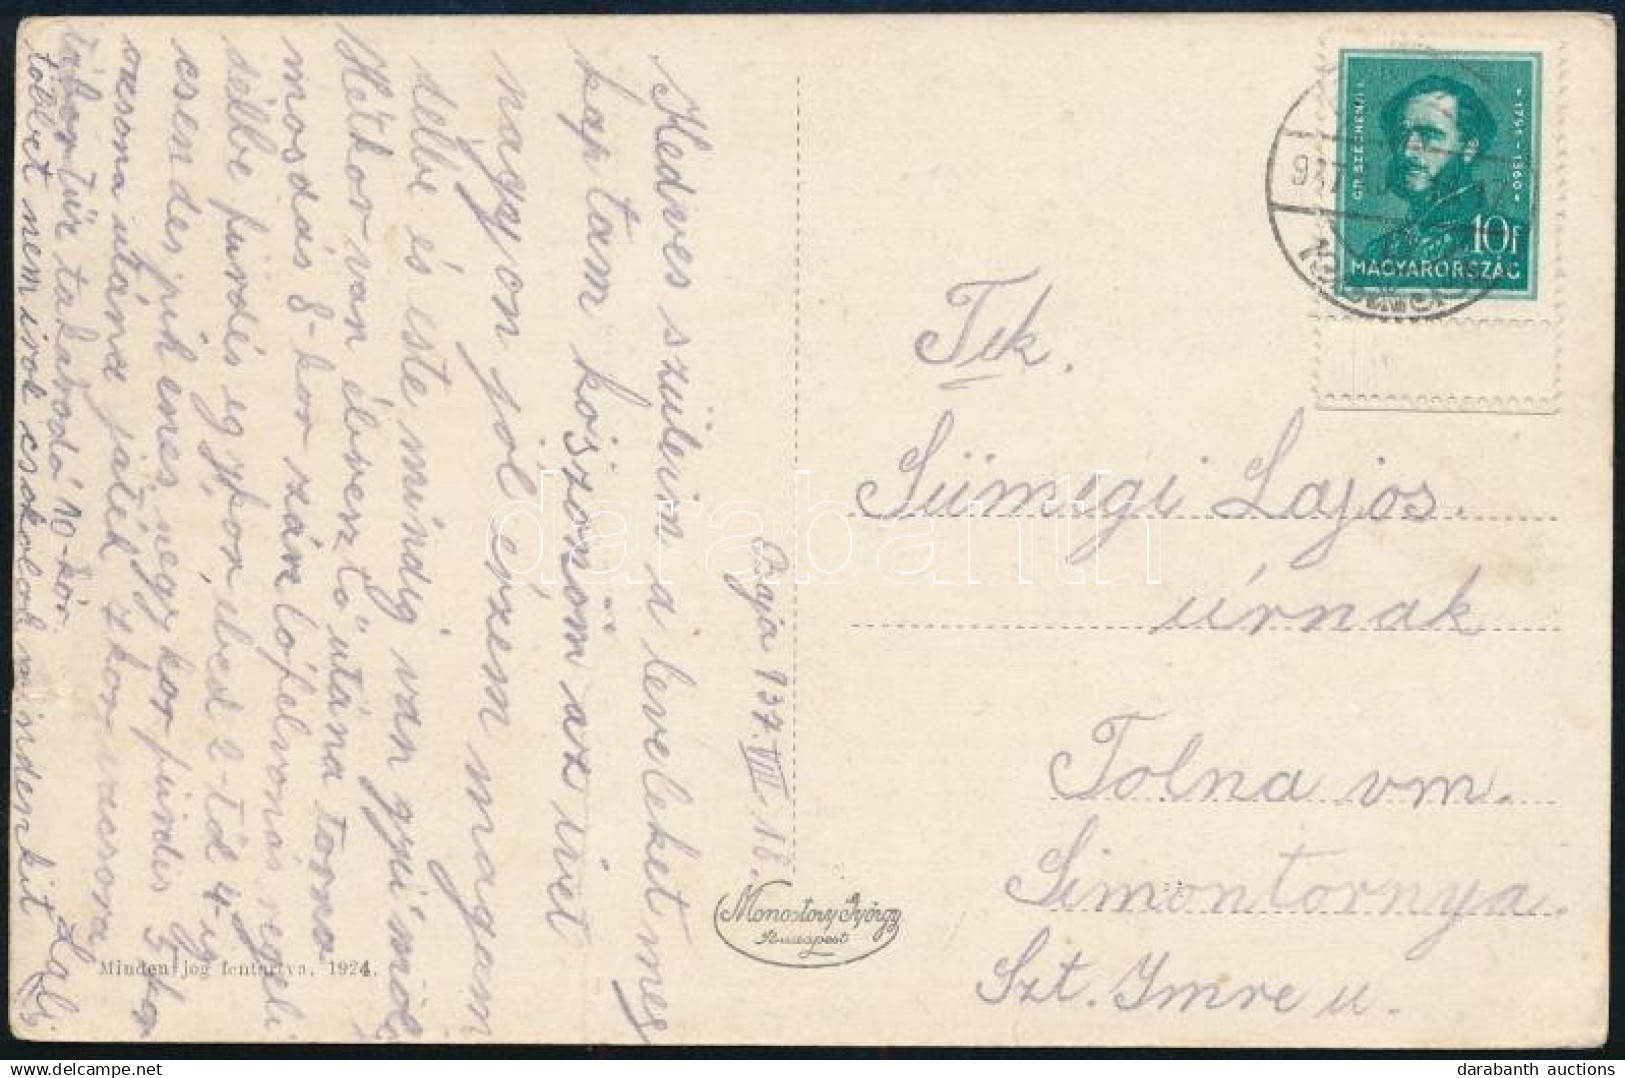 Kedves szüleim a leveleket meg
kaptam köszönöm az ivet
nagyon jól érzem magam
délbe és este mindig van gyümölcs
Hétkor van ébresztő utána torna
mosdás 8-kor zászlófelvonás regeli
délbe fürdés egykor ebéd 2-től 4-ig
csendes pihenés négykor fürdés 5kor
ozsona utána játék vacsora
tábortűz takarodó 10-kor.
többet nem irok csokolok mindenkit Lali
Baja 937. VIII. 16.
Minden jog fentartva, 1924.
Monostory György
Budapest
GR. SZÉCHENYI I.
1791-1860
10f
MAGYARORSZÁG
Tek.
Sümegi Lajos
úrnak
Tolna vm.
Simontornya
Szt. Imre u.
darabanth
darabanth auctions